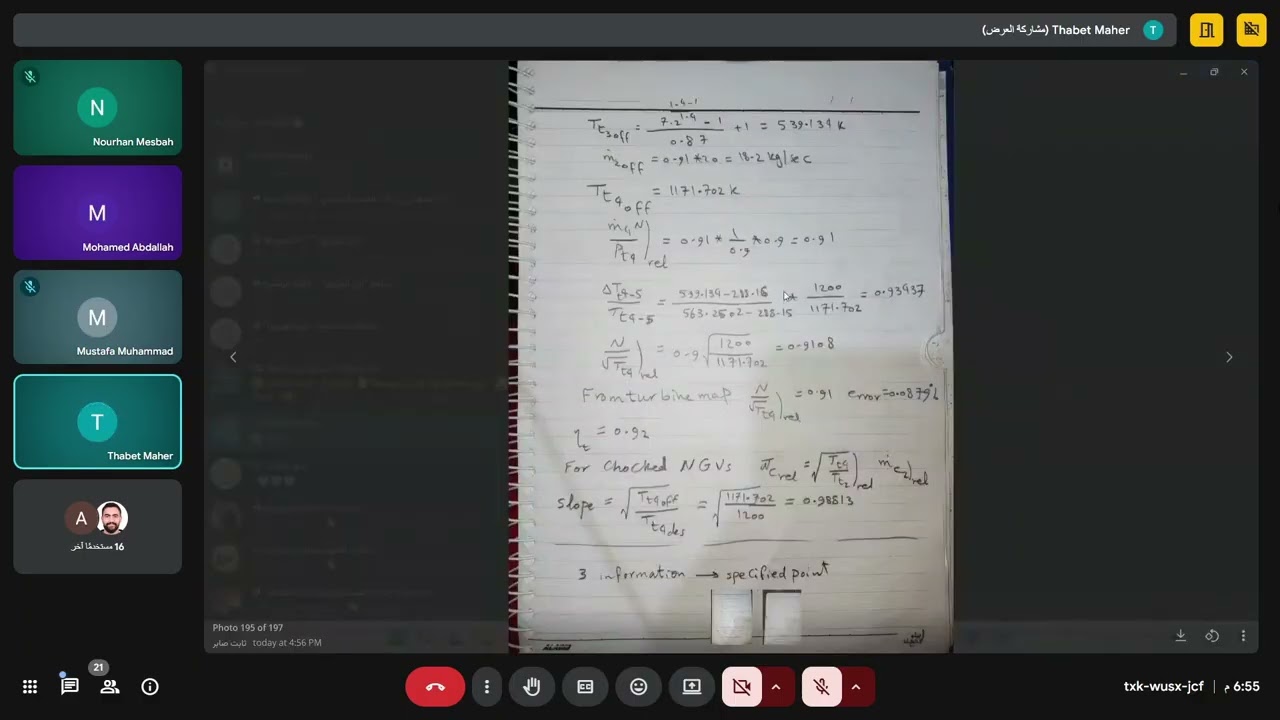 (مشاركة العرض) Thabet Maher
T
N
Nourhan Mesbah
M
Mohamed Abdallah
M
Mustafa Muhammad
T
Thabet Maher
A
16 مستخدمًا آخر
1.4-1
Tt3off = 7.2^1.4 - 1 / 0.87 + 1 = 539.134 K
ṁ2off = 0.91 * 20 = 18.2 kg/sec
Tt4off = 1171.702 K
ṁ4 N / Pt4 )rel = 0.91 * 1/0.9 * 0.9 = 0.91
ΔTt4-5 / Tt4-5 = 539.134-288.15 / 563.2502-288.15 * 1200 / 1171.702 = 0.93437
N / √Tt4 )rel = 0.9 √1200 / 1171.702 = 0.9108
From turbine map N / √Tt4 )rel = 0.91 error = 0.0879%
ηt = 0.92
For Chocked NGVs πc rel = √Tt4 / Tt2 )rel ṁc2)rel
slope = √Tt4off / Tt4des = √1171.702 / 1200 = 0.98813
3 information → specified point
Photo 195 of 197
ثابت صابر today at 4:56 PM
21
txk-wusx-jcf | 6:55 م